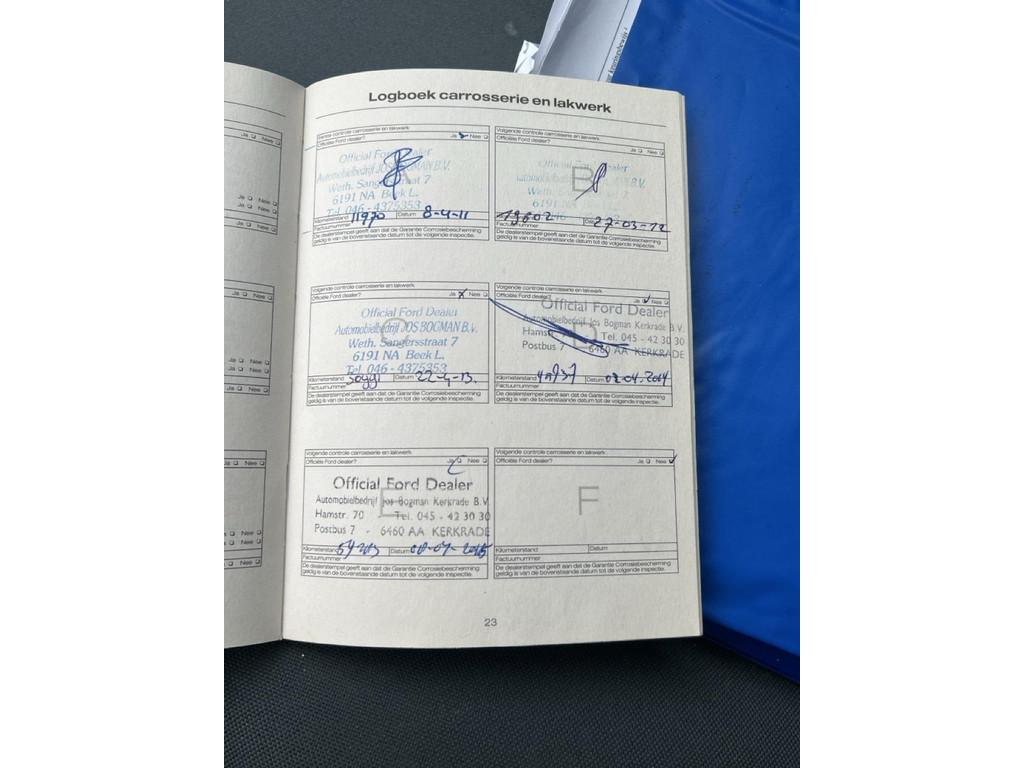 Logboek carrosserie en lakwerk
Eerste controle carrosserie en lakwerk
Officiële Ford dealer? Ja Nee
A
Official Ford Dealer
Automobielbedrijf JOS BOGMAN B.V.
Weth. Sangersstraat 7
6191 NA Beek L.
Tel. 046 - 4375353
Kilometerstand 11970 Datum 8-4-11
Factuurnummer
De dealerstempel geeft aan dat de Garantie Corrosiebescherming
geldig is van de bovenstaande datum tot de volgende inspectie.
Volgende controle carrosserie en lakwerk
Officiële Ford dealer?
Ja Nee
B
Official Ford Dealer
19602 Datum 27-03-12
Factuurnummer
De dealerstempel geeft aan dat de Garantie Corrosiebescherming
geldig is van de bovenstaande datum tot de volgende inspectie.
Volgende controle carrosserie en lakwerk
Officiële Ford dealer? Ja Nee
C
Official Ford Dealer
Automobielbedrijf JOS BOGMAN B.V.
Weth. Sangersstraat 7
6191 NA Beek L.
Tel. 046 - 4375353
Kilometerstand Datum 22-4-13.
Factuurnummer
De dealerstempel geeft aan dat de Garantie Corrosiebescherming
geldig is van de bovenstaande datum tot de volgende inspectie.
Volgende controle carrosserie en lakwerk
Officiële Ford dealer? Ja Nee
D
Official Ford Dealer
Automobielbedrijf Jos Bogman Kerkrade B.V.
Hamstr. Tel. 045 - 42 30 30
Postbus 7 6460 AA KERKRADE
Kilometerstand Datum 02.04.2014
Factuurnummer
De dealerstempel geeft aan dat de Garantie Corrosiebescherming
geldig is van de bovenstaande datum tot de volgende inspectie.
Volgende controle carrosserie en lakwerk
Officiële Ford dealer? Ja Nee
E
Official Ford Dealer
Automobielbedrijf Jos Bogman Kerkrade B.V.
Hamstr. 70 - Tel. 045 - 42 30 30
Postbus 7 - 6460 AA KERKRADE
Kilometerstand Datum
Factuurnummer
De dealerstempel geeft aan dat de Garantie Corrosiebescherming
geldig is van de bovenstaande datum tot de volgende inspectie.
Volgende controle carrosserie en lakwerk
Officiële Ford dealer? Ja Nee
F
Kilometerstand Datum
Factuurnummer
De dealerstempel geeft aan dat de Garantie Corrosiebescherming
geldig is van de bovenstaande datum tot de volgende inspectie.
23